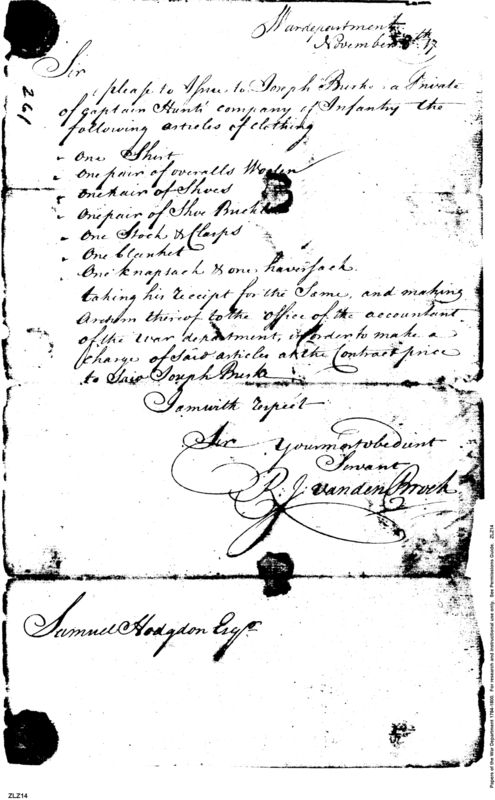 Wardepartment
November 8th 17
261
Sir
please to Issue to Joseph Busk a Private
of Captain Hunts' company of Infantry the
following articles of clothing
One Shirt
One pair of overalls Woolen
One pair of Shoes
One pair of Shoe Buckles
One Stock & Clasps
One blanket
One knapsack & one haversack
taking his receipt for the Same, and making
a return thereof to the office of the accountant
of the War department, in order to make a
Charge of Said articles at the Contract price
to Said Joseph Busk
I am with respect
Sir your most obedient
Servant
R. J. vanden Broek
Samuel Hodgdon Esqr
ZLZ14
Papers of the War Department 1784-1800. For research and instructional use only. See Permissions Guide. ZLZ14